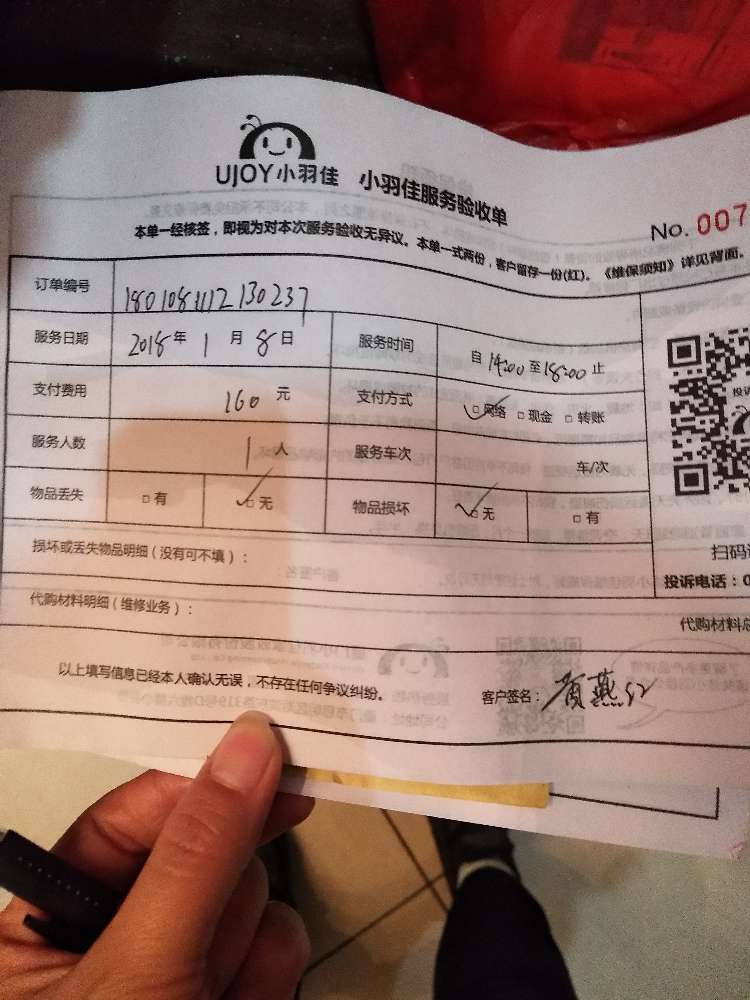 UJOY小羽佳 小羽佳服务验收单
No. 007
本单一经核签，即视为对本次服务验收无异议。本单一式两份，客户留存一份(红)。《维保须知》详见背面。
订单编号 1801081112130237
服务日期 2018年1月8日 服务时间 自14:00至18:00止
支付费用 160元 支付方式 □网络 □现金 □转账
服务人数 1人 服务车次 车/次
物品丢失 □有 □无 物品损坏 □无 □有
投诉
损坏或丢失物品明细（没有可不填）：
扫码
投诉电话：0
代购材料明细（维修业务）：
代购材料总
以上填写信息已经本人确认无误，不存在任何争议纠纷。 客户签名：黄燕红